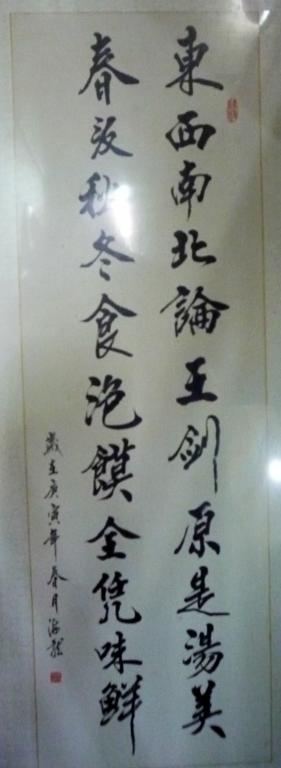 東西南北論王劍原是湯美
春夏秋冬食泡饃全凭味鮮
歲在庚寅年春月海龍